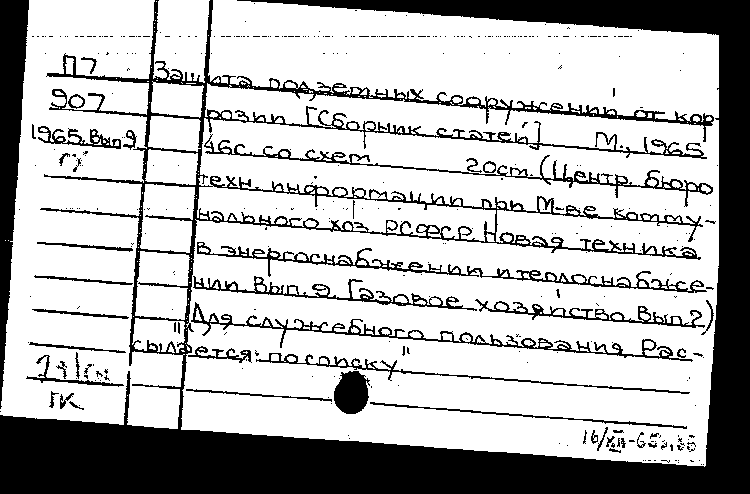 П7 Защита подземных сооружений от кор-
907 розии [Сборник статей] М., 1965
1965. Вып. 9 46с. со схем. 20см. (Центр. бюро
техн. информации при М-ве комму-
нального хоз. РСФСР. Новая техника
в энергоснабжении и теплоснабже-
нии Вып. 9. Газовое хозяйство. Вып. 2)
"Для служебного пользования. Рас-
сылается: по списку"
ГК
16/XII-65г.